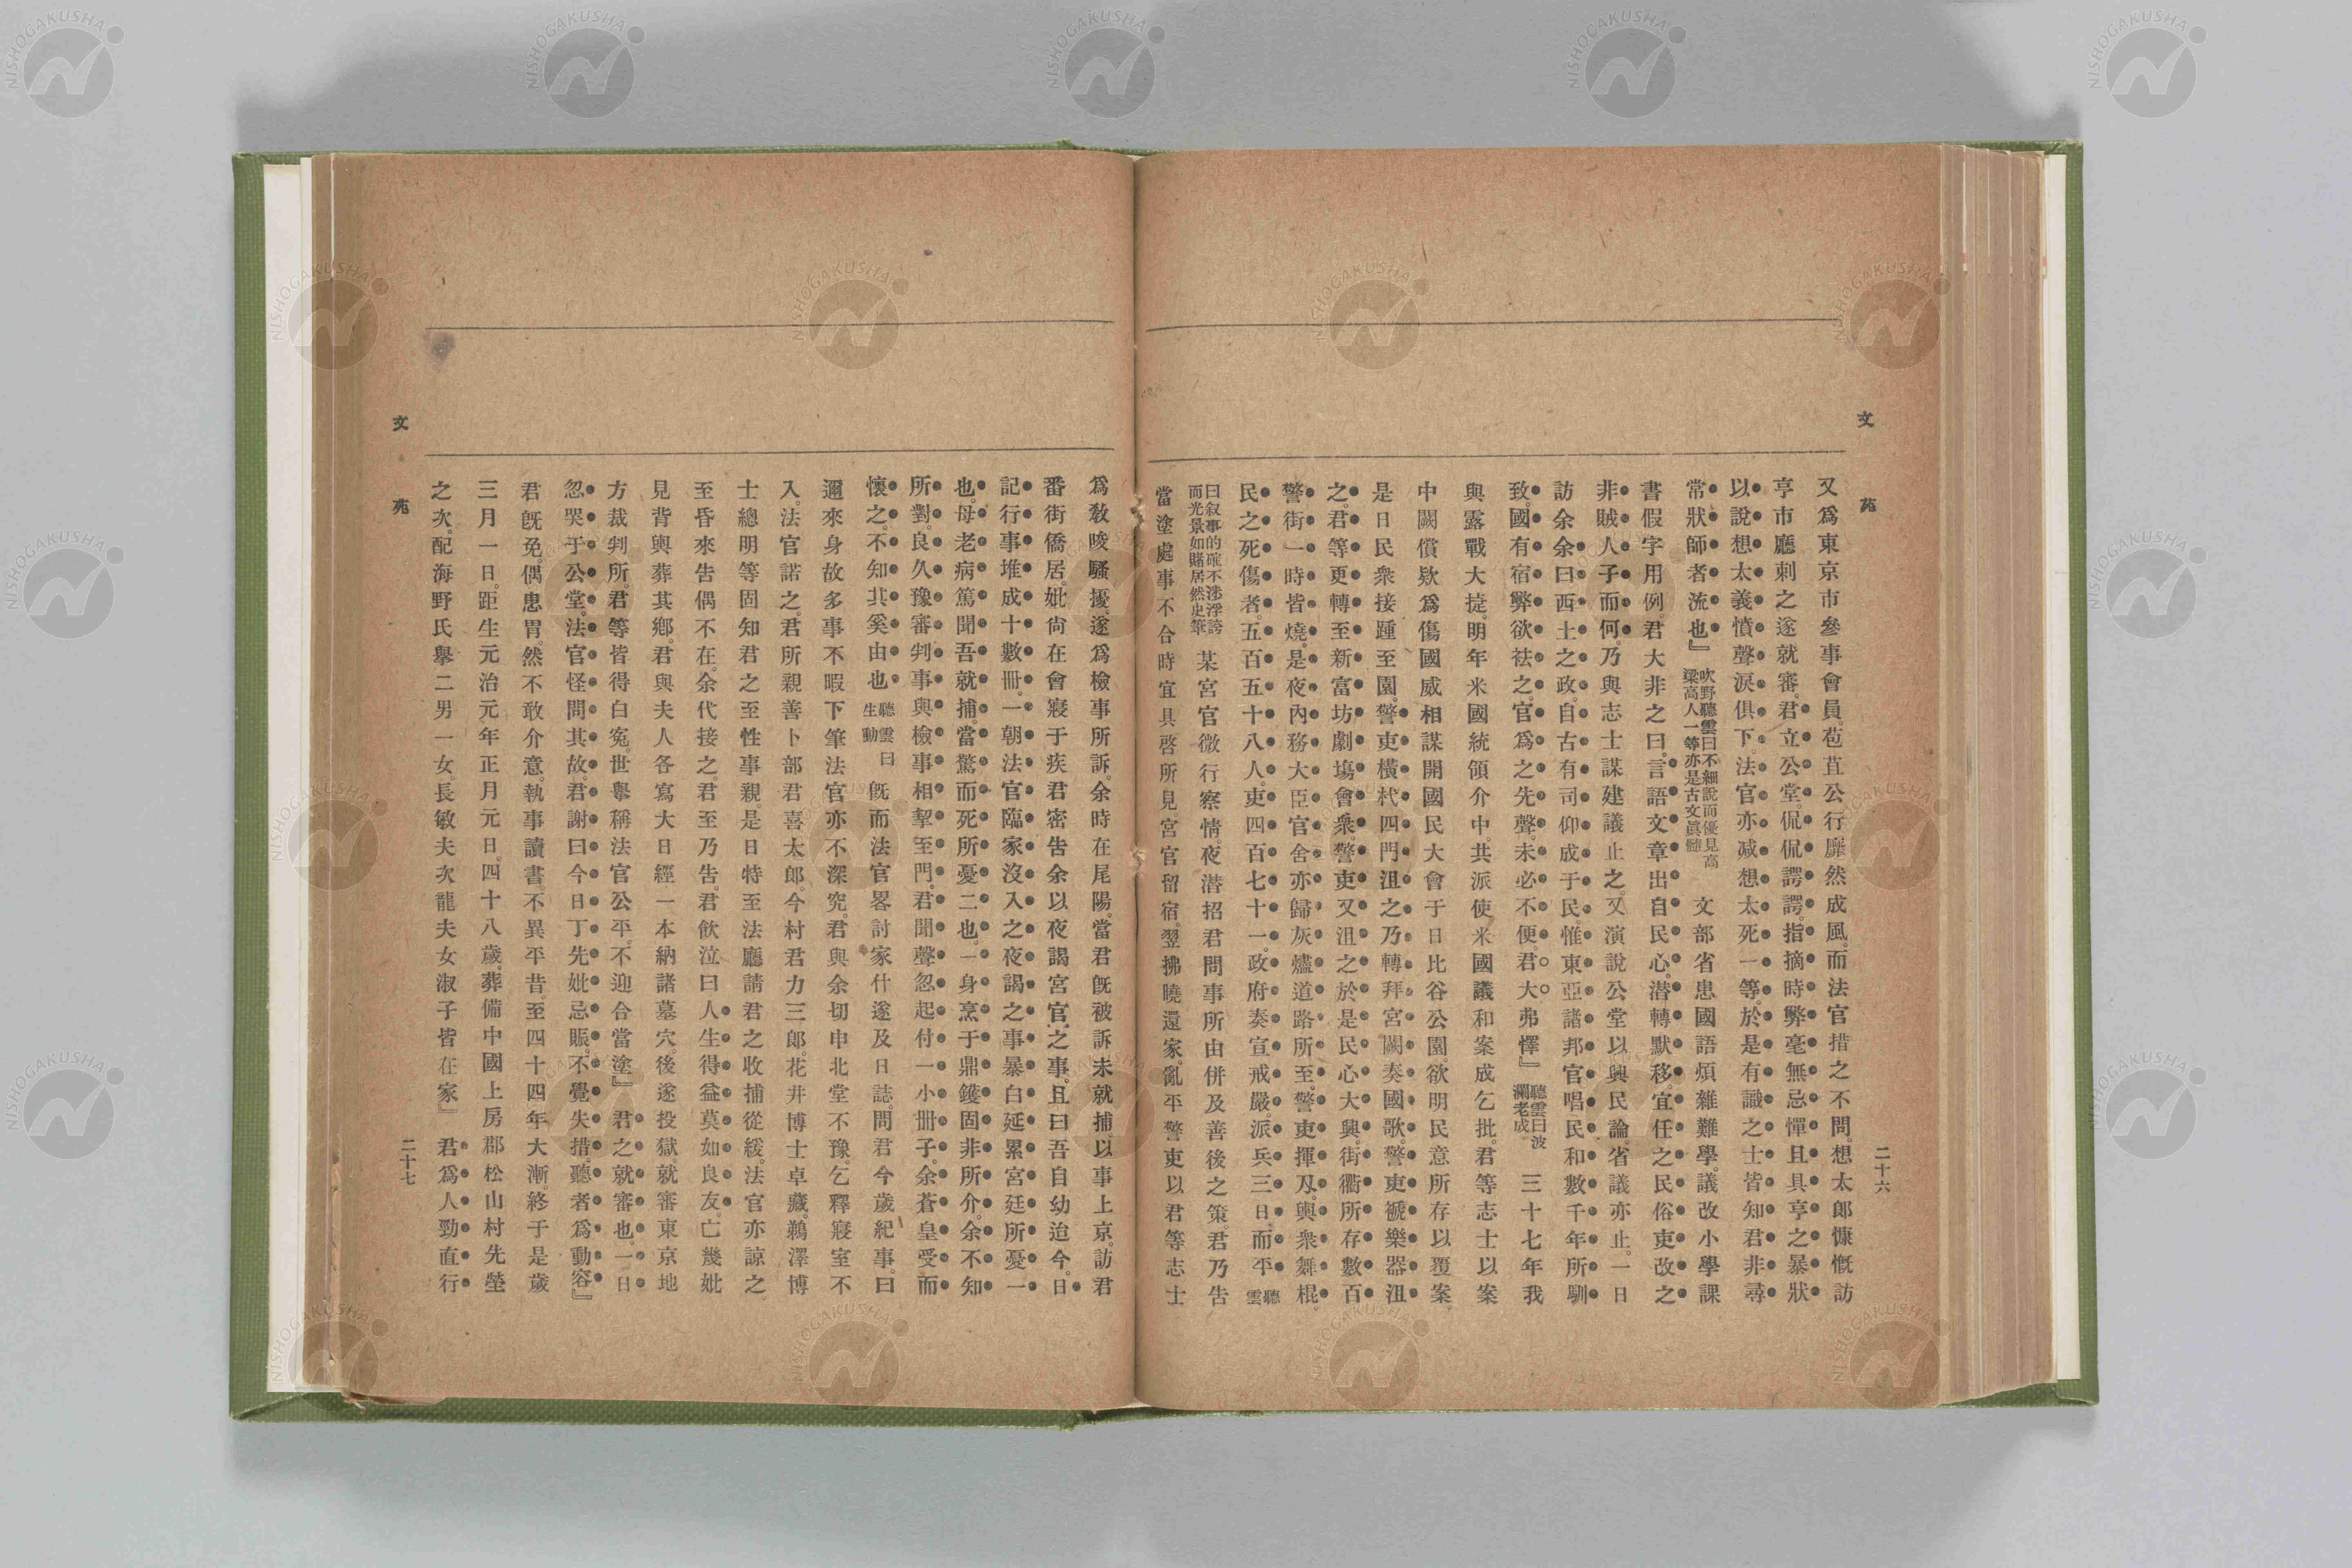 文苑
二十六
又爲東京市參事會員。苞苴公行靡然成風。而法官措之不問。想太郎慷慨訪
亨市廳刺之遂就審。君立公堂。侃侃諤諤。指摘時弊毫無忌憚且具亨之暴狀
以說想太義憤聲淚俱下。法官亦减想太死一等。於是有識之士皆知君非尋
常狀師者流也』吹野聽雲曰不細說而優見高梁高人一等亦是古文眞髓 文部省患國語煩雜難學。議改小學課
書假字用例。君大非之曰。言語文章出自民心。潜轉默移。宜任之民俗吏改之
非賊人子而何。乃與志士謀建議止之。又演說公堂以興民論。省議亦止。一日
訪余余曰西土之政。自古有司仰成于民。惟東亞諸邦官唱民和數千年所馴
致。國有宿弊欲袪之。官爲之先聲。未必不便。君大弗懌』聽雲曰波瀾老成 三十七年我
與露戰大捷。明年米國統領介中。共派使米國議和案成乞批。君等志士以案
中闕償欵爲傷國威相謀開國民大會于日比谷公園欲明民意所存以覆案。
是日民衆接踵至園。警吏橫杙四門沮之乃轉拜宮闕奏國歌。警吏褫樂器沮
之。君等更轉至新富坊劇塲會衆。警吏又沮之於是民心大興。街衢所存數百
警街一時皆燒。是夜內務大臣官舍亦歸灰燼道路所至。警吏揮刄。與衆舞棍。
民之死傷者。五百五十八人。吏四百七十一。政府奏宣戒嚴。派兵三日。而平。聽雲
曰叙事的確不涉浮誇而光景如睹居然史筆 某宮官微行察情。夜潜招君問事所由併及善後之策。君乃告
當塗處事不合時宜具啓所見宮官留宿。翌拂曉還家。亂平警吏以君等志士
爲敎唆騷擾。遂爲檢事所訴。余時在尾陽。當君旣被訴未就捕。以事上京。訪君
番街僑居。妣尙在會寢于疾君密告余以夜謁宮官之事。且曰吾自幼迨今。日
記行事堆成十數冊。一朝法官臨家沒入之夜謁之事暴白延累宮廷所憂一
也。母老病篤聞吾就捕。當驚而死所憂二也。一身烹于鼎鑊固非所介。余不知
所對。良久豫審判事與檢事相挈至門。君聞聲忽起付一小冊子。余蒼皇受而
懷之。不知其奚由也。聽雲曰生動 旣而法官畧討家什遂及日誌。問君今歲紀事。曰
邇來身故多事不暇下筆法官亦不深究。君與余切申北堂不豫。乞釋寢室不
入。法官諾之。君所親善卜部君喜太郎。今村君力三郎。花井博士卓藏。鵜澤博
士總明等固知君之至性事親。是日特至法廳請君之收捕從緩。法官亦諒之。
至昏來告偶不在。余代接之。君至乃告。君飲泣曰人生得益莫如良友。亡幾妣
見背輿葬其鄕。君與夫人各寫大日經一本納諸墓穴。後遂投獄。就審東京地
方裁判所。君等皆得白寃。世擧稱法官公平。不迎合當塗』君之就審也。一日
忽哭于公堂。法官怪問其故。君謝曰今日丁先妣忌賬。不覺失措。聽者爲動容』
君旣免。偶患胃。然不敢介意。執事讀書。不異平昔。至四十四年大漸。終于是歲
三月一日。距生元治元年正月元日。四十八歲。葬備中國上房郡松山村先塋
之次。配海野氏擧二男一女。長敏夫次龍夫女淑子皆在家』君爲人勁直行
文苑
二十七